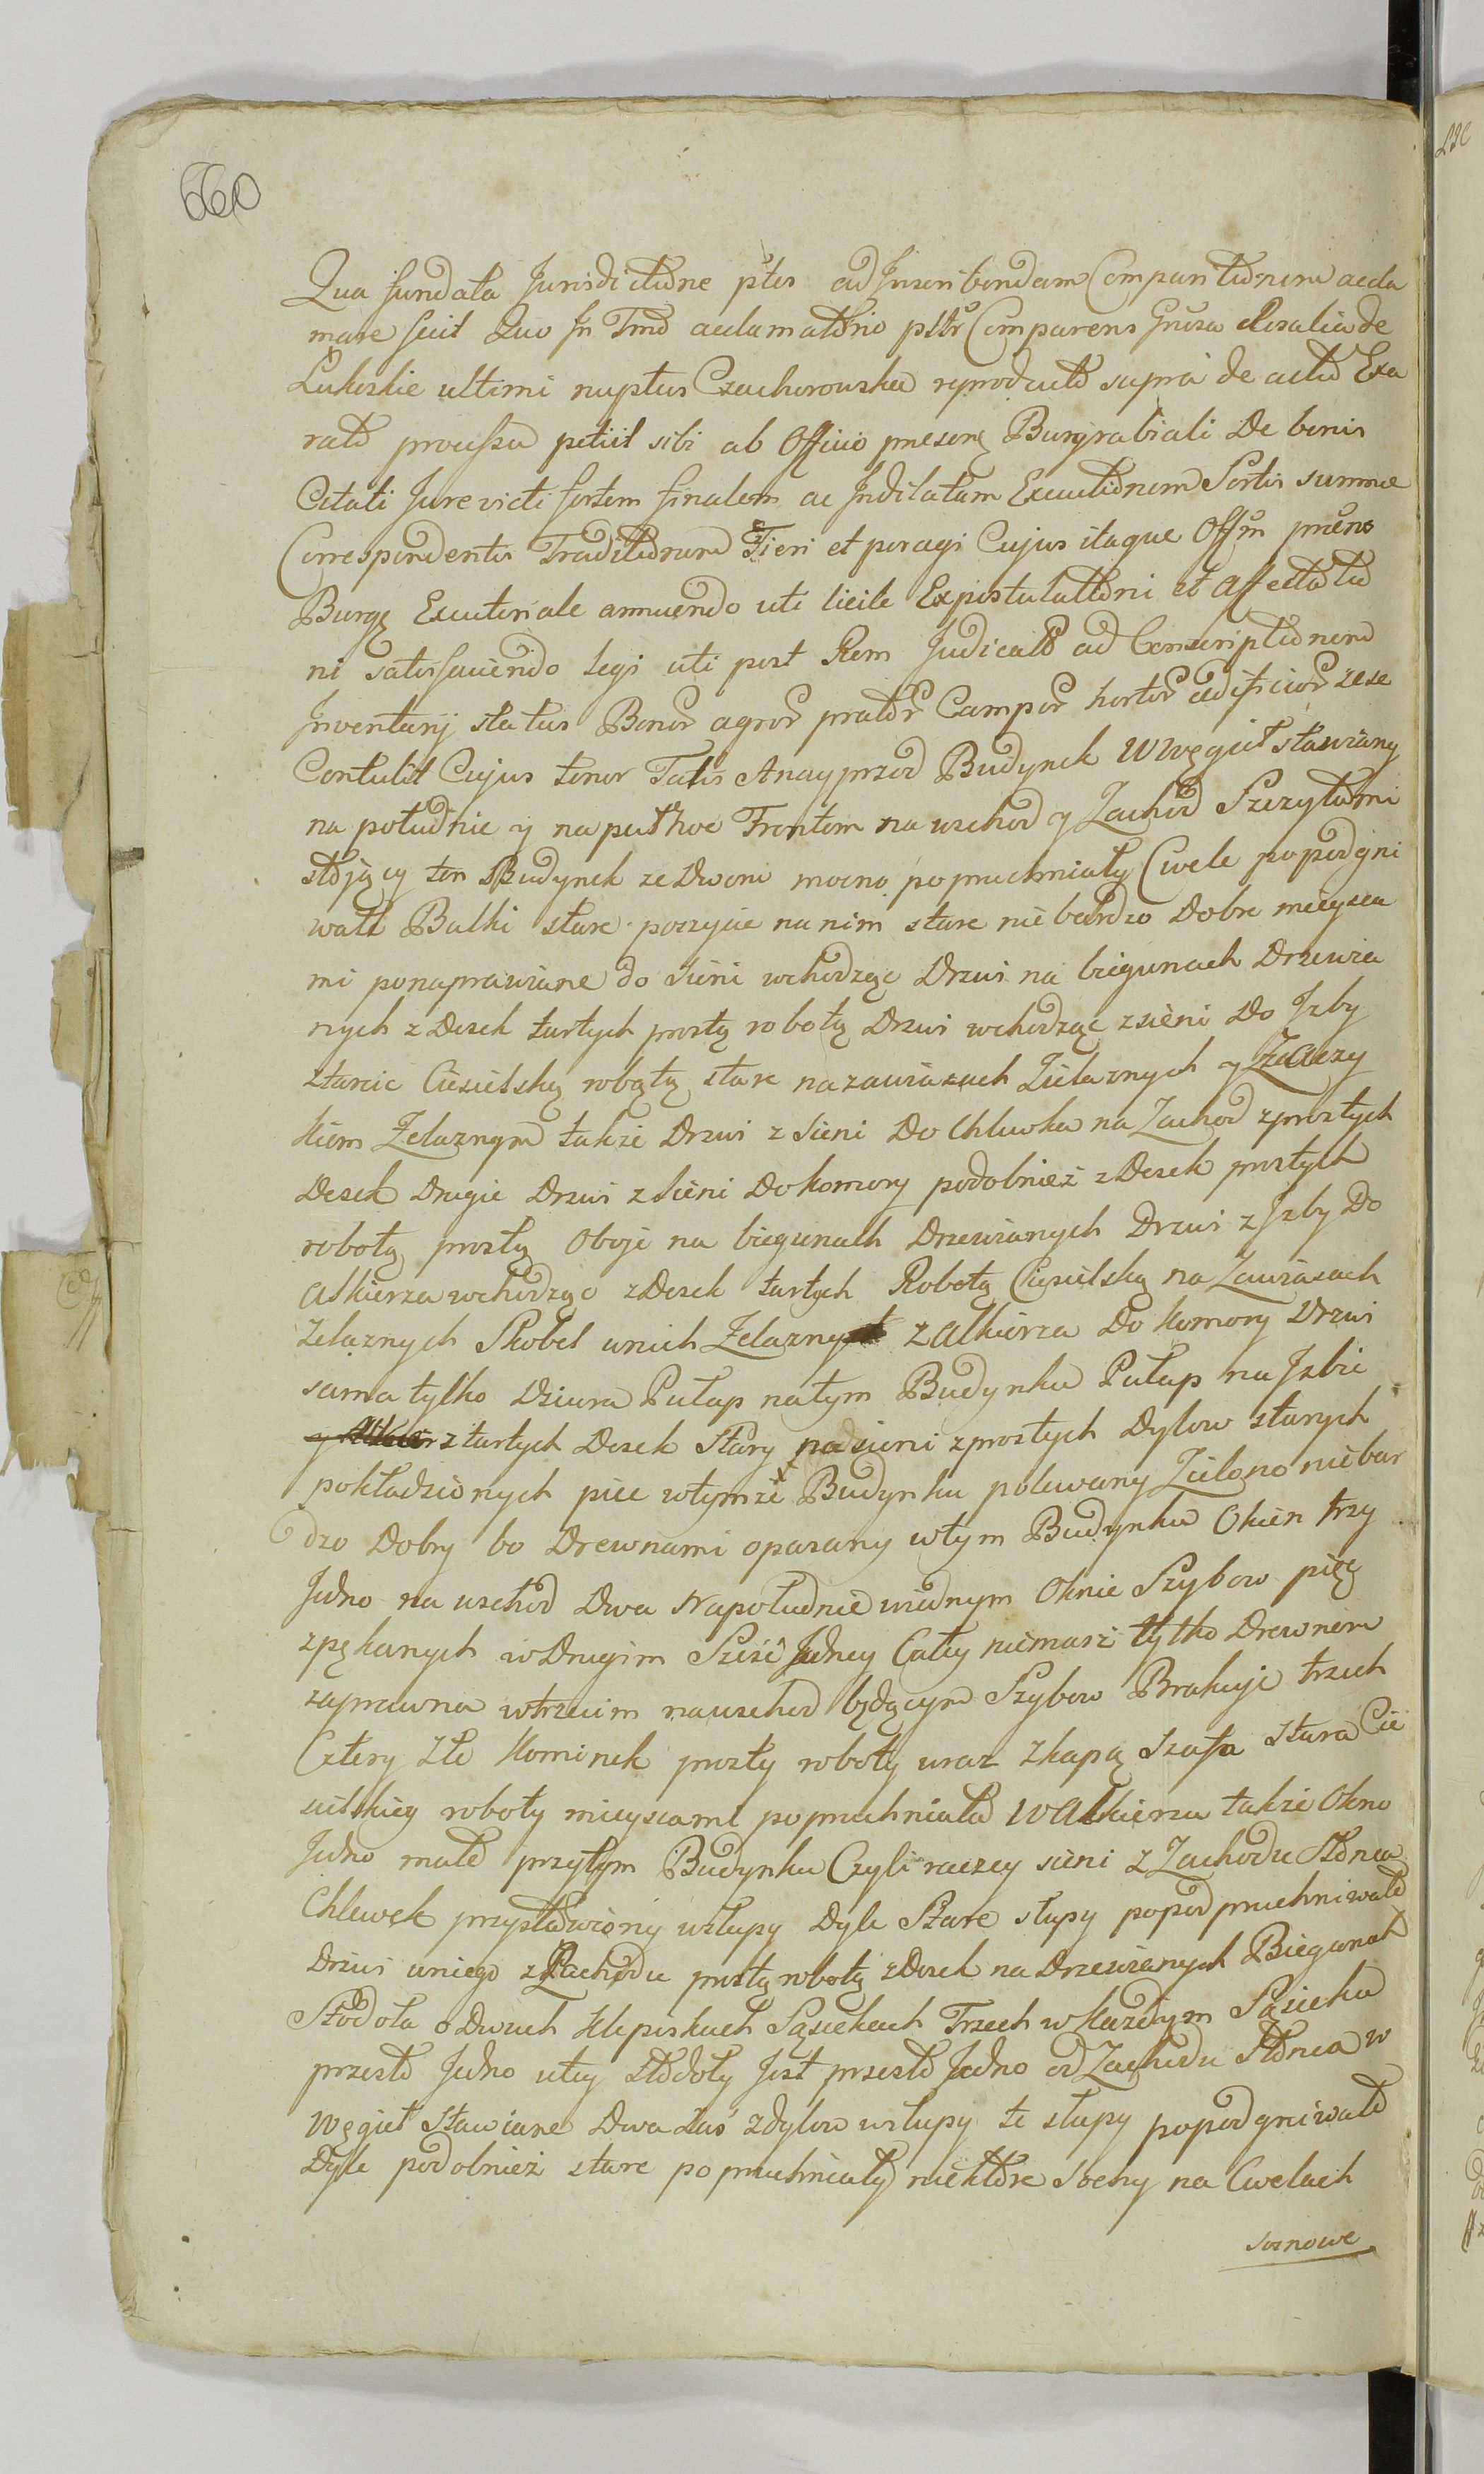 660
Qua fundata Jurisdictione ptes ad Inscribendam Comparitionem accla
mare fecit Quo In Tmo acclamationis ptlr Comparens Gnsa Rosalia de
Lukoskie ultimi nuptus Czachorouska reproducto supra de actu Exa
rato processu petiit sibi ab Officio pnesenę Burgrabiali De bonis
Citati Jure victi fortem finalem ac Indilatam Executionem Sortis summae
Correspondentis Traditionem Fieri et peragi Cujus itaque Offm pnens
Burgę Executoriale annuendo uti licite Expostulationi et affectatio
ni satisfaciendo Legi uti post Rem Judicatam ad Conscriptionem
Inventarij status Bonor agror prator Campor hortor aedificior sese
Contulit Cujus tenor Talis Anayprzod Budynek w węgieł stawiany
na południe y na pułnoc Frontem na wschod y Zachod Szczytami
stojący ten Budynek ze Dworu mocno popruchniały Cwele popodgni
wałe Balki stare poszycie na nim stare nie bardzo Dobre mieysca
mi ponaprawiane do sieni wchodząc Drzwi na biegunach Drzewia
nych z Desek tartych prostą robotą Drzwi wchodząc z sieni Do Izby
stare Ciesielską robotą stare na zawiasach Zielaznych y Haczy
kiem Zelaznym także Drzwi z sieni Do Chlewka na Zachod z prostych
Desek Drugie Drzwi z sieni Do komory podobnież z Desek prostych
robotą prostą Oboje na biegunach Drzewianych Drzwi z Izby Do
alkierza wchodząc z Desek tartych Robotą Ciesielską na Zawiasach
żelaznych Skobel u nich Zelazny z alkierza Do komory Drzwi
sama tylko Dziura Pułap na tym Budynku Pułap na Izbie
z tartych Desek Stary na sieni z prostych Dylow starych
pokładzionych piec w tymże Budynku polewany Zielono nie bar
dzo Dobry bo Drewnami oparany w tym Budynku Okien trzy
Jedno na uschod Dwa Na południe wiednym Oknie Szybow pięć
zpękanych w Drugim Sześć Jedney Cały niemasz tylko Drewnem
zaprawna w trzecim na uschod będącym Szybow Brakuje trzech
Cztery złe Kominek prosty roboty wraz z kapą Szafa stara Cie
sielskiey roboty mieyscami popruchniała w alkierzu także Okno
Jedno małe przy tym Budynku Czyli raczey sieni z Zachodu Słonca
Chlewek przystawiony w słupy Dyle Stare słupy popodpruchniwałe
Drzwi u niego z Zachodu prostą robotą z Desek na Drzewianych Biegunach
Stodoła o Dwuch Klepiskach Sąsiekach Trzech w każdym Sąsieku
przesło Jedno u tey stodoły Jest przesło Jedno od Zachodu Słonca w
Węgieł Stawiane Dwa zaś z dylow w słupy te słupy popodgniwałe
Dyle podobnież stare popruchniały niektore sochy na Cwelach
sosnowe